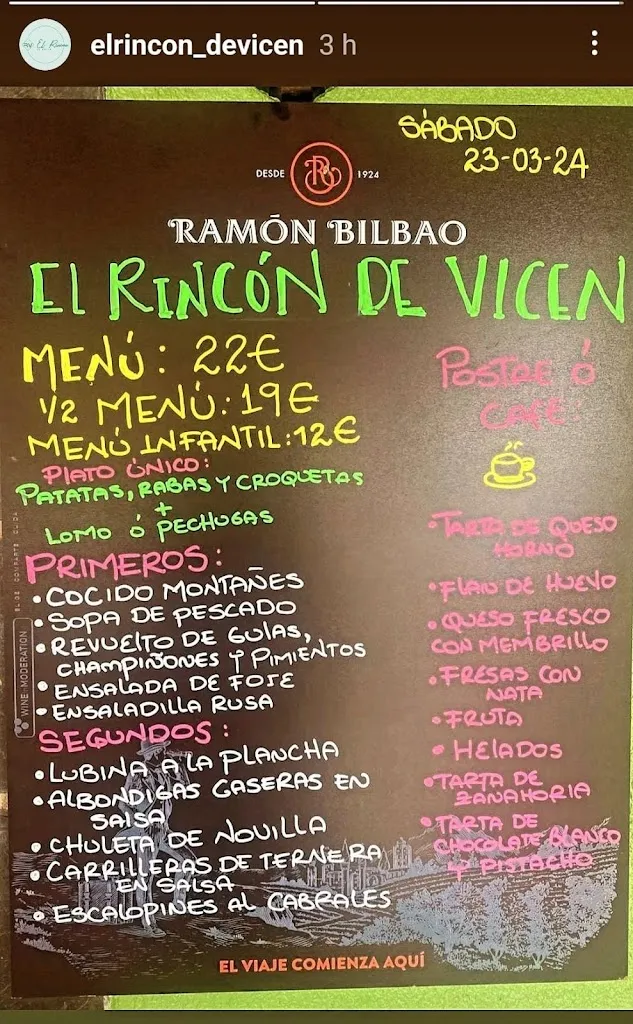 elrincon_devicen 3 h
SÁBADO
23-03-24
DESDE 1924
RAMÓN BILBAO
EL RINCÓN DE VICEN
MENÚ: 22€
1/2 MENÚ: 19€
MENÚ INFANTIL: 12€
PLATO ÚNICO:
PATATAS, RABAS Y CROQUETAS
+
LOMO Ó PECHUGAS
PRIMEROS:
• COCIDO MONTAÑES
• SOPA DE PESCADO
• REVUELTO DE GULAS,
CHAMPIÑONES Y PIMIENTOS
• ENSALADA DE FOIE
• ENSALADILLA RUSA
SEGUNDOS:
• LUBINA A LA PLANCHA
• ALBONDIGAS CASERAS EN
SALSA
• CHULETA DE NOVILLA
• CARRILLERAS DE TERNERA
EN SALSA
• ESCALOPINES AL CABRALES
POSTRE Ó
CAFÉ:
• TARTA DE QUESO
HORNO
• FLAN DE HUEVO
• QUESO FRESCO
CON MEMBRILLO
• FRESAS CON
NATA
• FRUTA
• HELADOS
• TARTA DE
ZANAHORIA
• TARTA DE
CHOCOLATE BLANCO
Y PISTACHO
WINE MODERATION
EL VIAJE COMIENZA AQUÍ